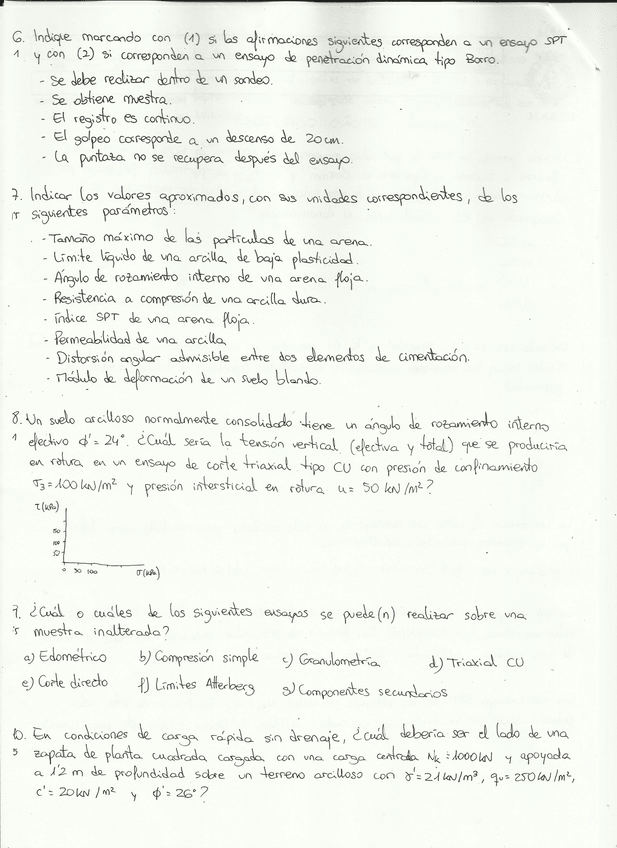 6. Indique marcando con (1) si las afirmaciones siguientes corresponden a un ensayo SPT
1 y con (2) si corresponden a un ensayo de penetración dinámica tipo Borro.
- Se debe realizar dentro de un sondeo.
- Se obtiene muestra.
- El registro es continuo.
- El golpeo corresponde a un descenso de 20 cm.
- La puntaza no se recupera después del ensayo.
7. Indicar los valores aproximados, con sus unidades correspondientes, de los
siguientes parámetros:
- Tamaño máximo de las partículas de una arena.
- Límite líquido de una arcilla de baja plasticidad.
- Ángulo de rozamiento interno de una arena floja.
- Resistencia a compresión de una arcilla dura.
- índice SPT de una arena floja.
- Permeabilidad de una arcilla
- Distorsión angular admisible entre dos elementos de cimentación.
- Módulo de deformación de un suelo blando.
8. Un suelo arcilloso normalmente consolidado tiene un ángulo de rozamiento interno
1 efectivo ϕ'= 24°. ¿Cuál sería la tensión vertical (efectiva y total) que se produciría
en rotura en un ensayo de corte triaxial tipo CU con presión de confinamiento
σ3=100 kN/m² y presión intersticial en rotura u= 50 kN/m²?
τ(kPa)
150
100
50
0 50 100 σ(kPa)
9. ¿Cuál o cuáles de los siguientes ensayos se puede(n) realizar sobre una
muestra inalterada?
a) Edométrico b) Compresión simple c) Granulometría d) Triaxial CU
e) Corte directo f) Límites Atterberg g) Componentes secundarios
10. En condiciones de carga rápida sin drenaje, ¿cuál debería ser el lado de una
5 zapata de planta cuadrada cargada con una carga centrada Nk=1000kN y apoyada
a 1'2 m de profundidad sobre un terreno arcilloso con γ'=21kN/m³, qu=250kN/m²,
c'=20kN/m² y ϕ'=26°?